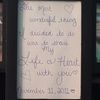 The most
wonderful thing
I decided to do
was to share
My
Life & Heart
with you
November 11, 2011